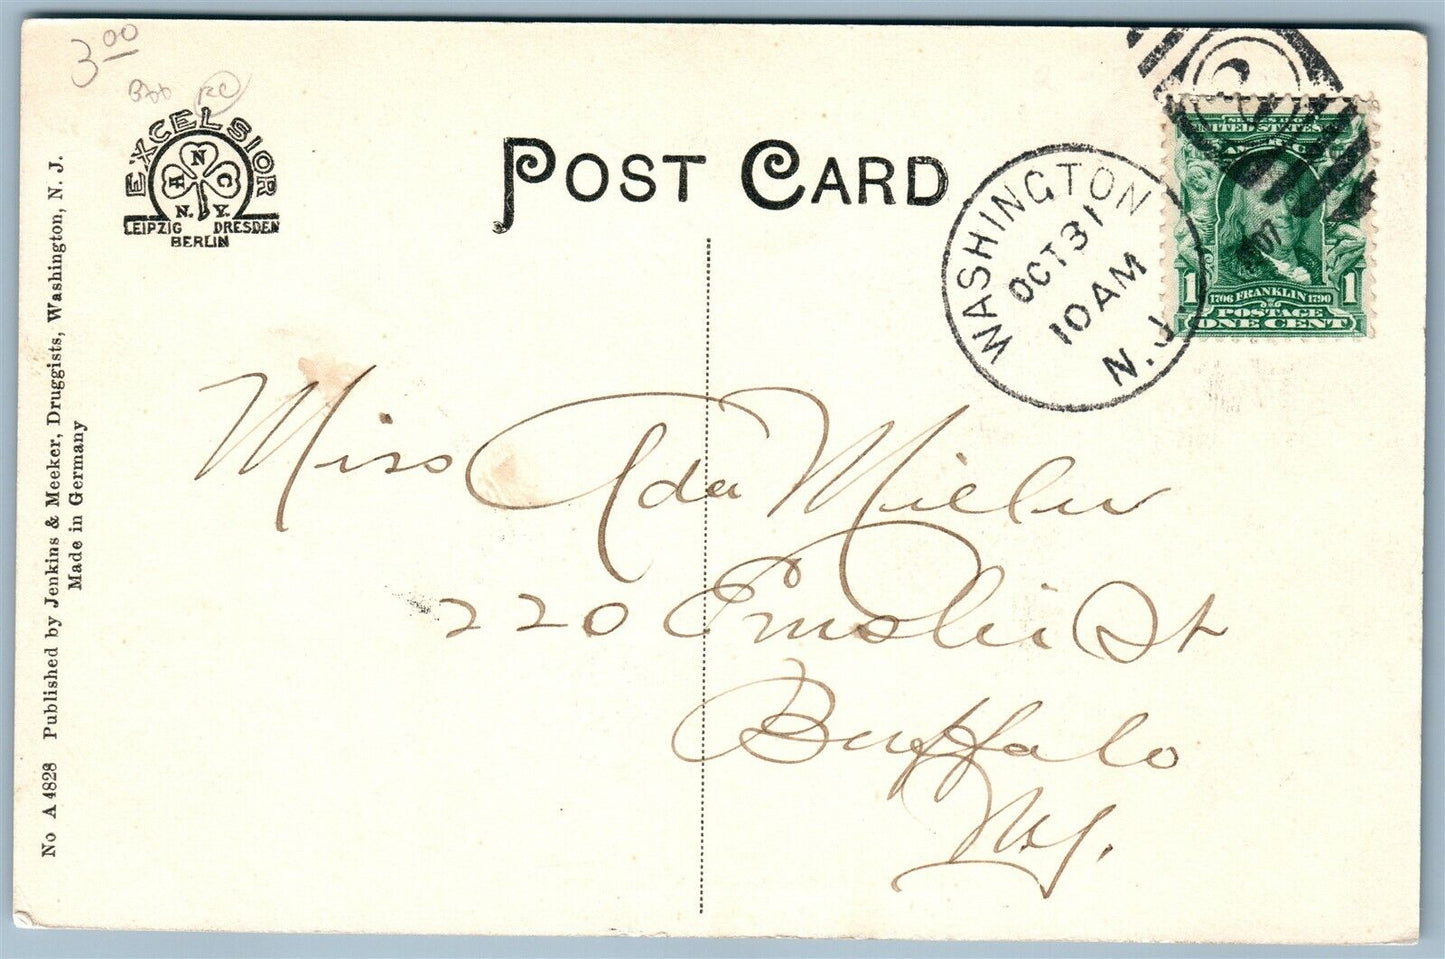 3.00
EXCELSIOR
A N C
N. Y.
LEIPZIG DRESDEN
BERLIN
POST CARD
WASHINGTON
OCT 31
10 AM
N.J.
1907
2
UNITED STATES
1 1706 FRANKLIN 1790 1
POSTAGE
ONE CENT
No A 4828 Published by Jenkins & Meeker, Druggists, Washington, N. J.
Made in Germany
Miss Ada Miller
220 Emslie St
Buffalo
N.Y.